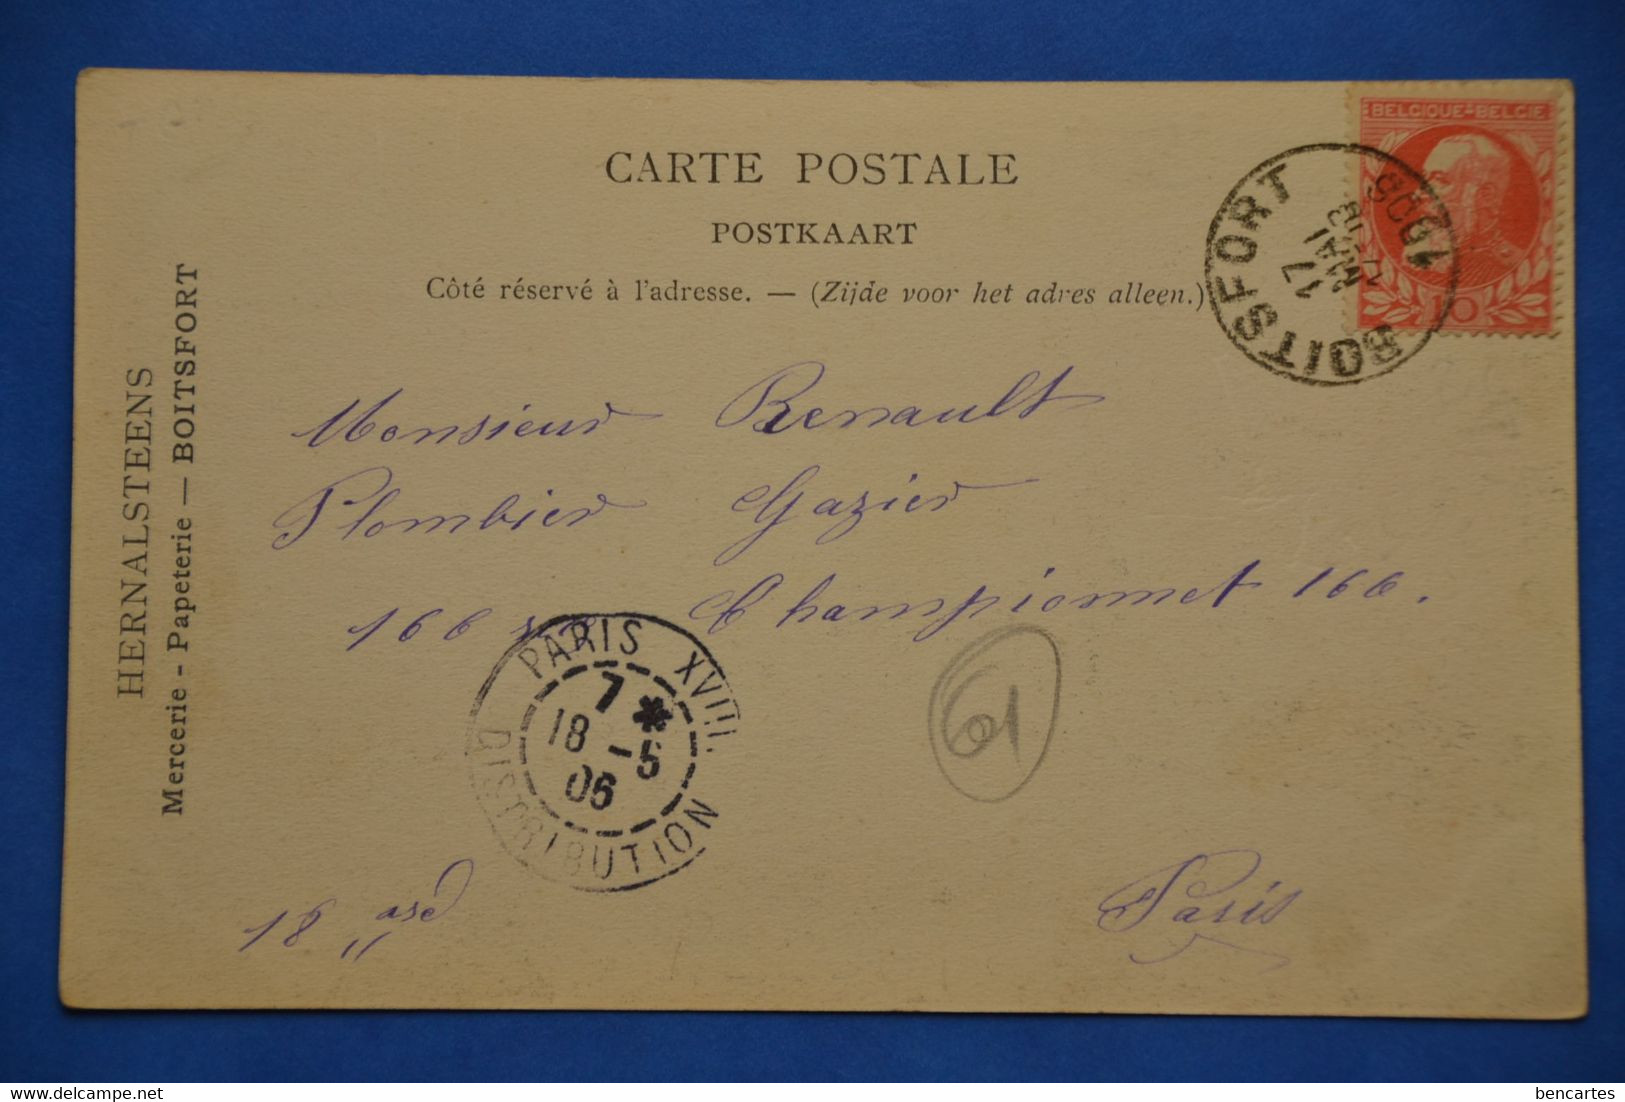 CARTE POSTALE
POSTKAART
Côté réservé à l'adresse. — (Zijde voor het adres alleen.)
BELGIQUE-BELGIE
10
BOITSFORT
17
MAI
1906
HERNALSTEENS
Mercerie - Papeterie — BOITSFORT
Monsieur Renault
Plombier Gazier
166 rue Championnet 166.
PARIS XVIII.
7 *
18 -5
06
DISTRIBUTION
61
18 " ard
Paris
bencartes